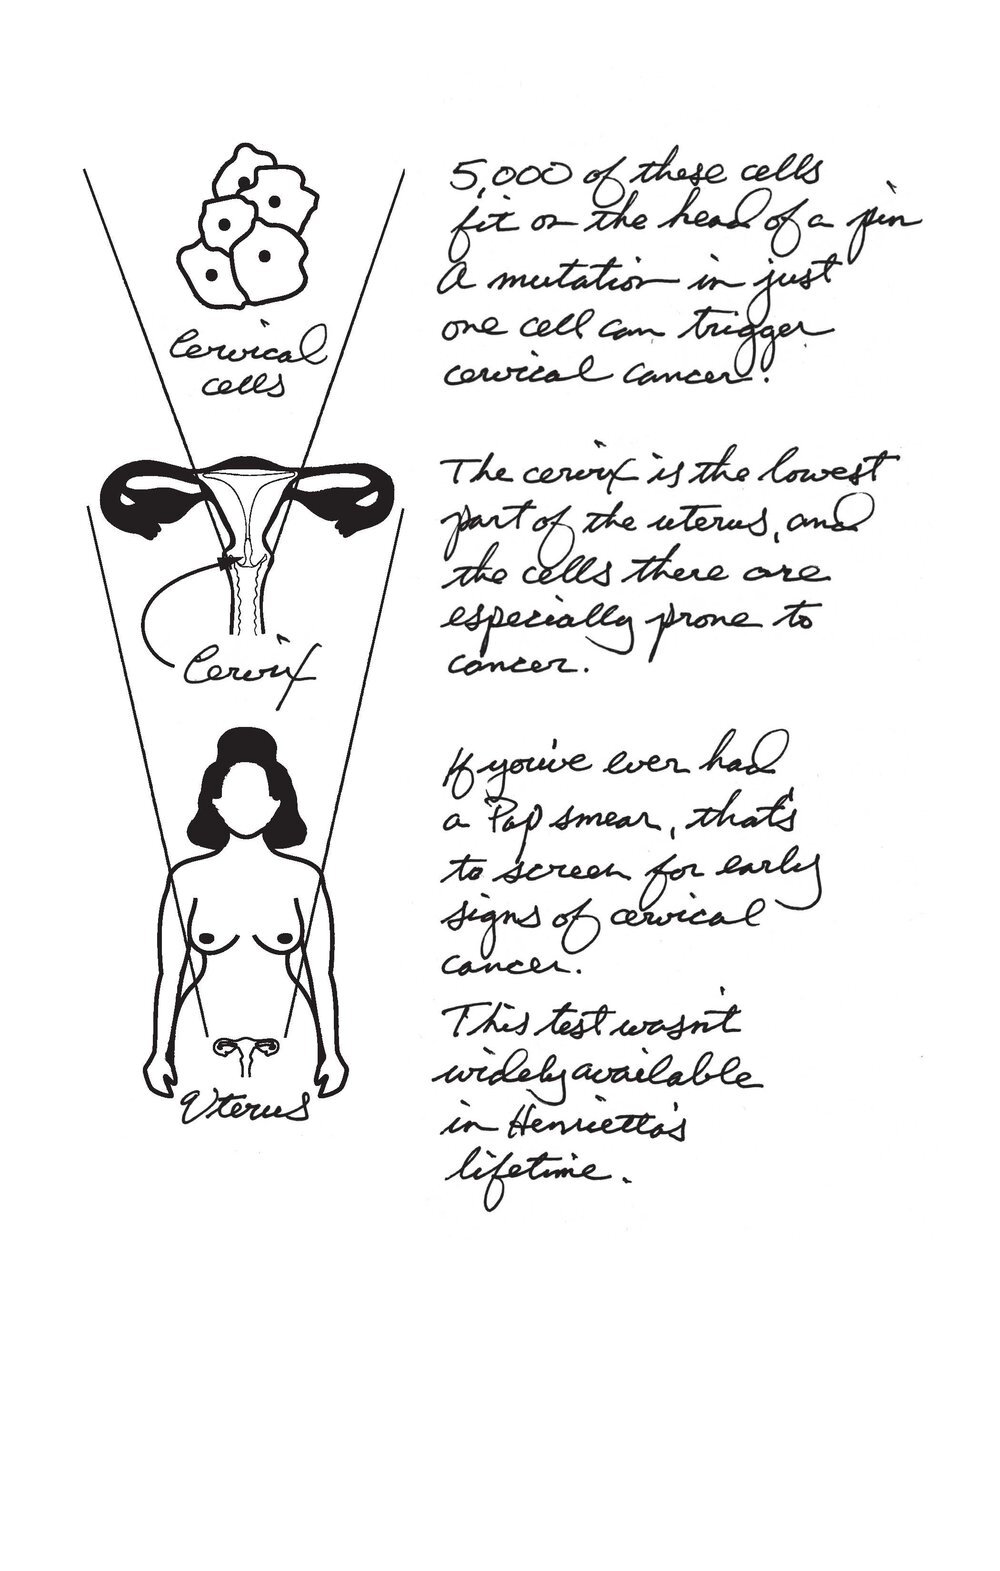 5,000 of these cells
fit on the head of a pin
A mutation in just
one cell can trigger
cervical cancer.
Cervical
cells
The cervix is the lowest
part of the uterus, and
the cells there are
especially prone to
cancer.
Cervix
If you've ever had
a Pap smear, that's
to screen for early
signs of cervical
cancer.
This test wasn't
widely available
in Henrietta's
lifetime.
Uterus